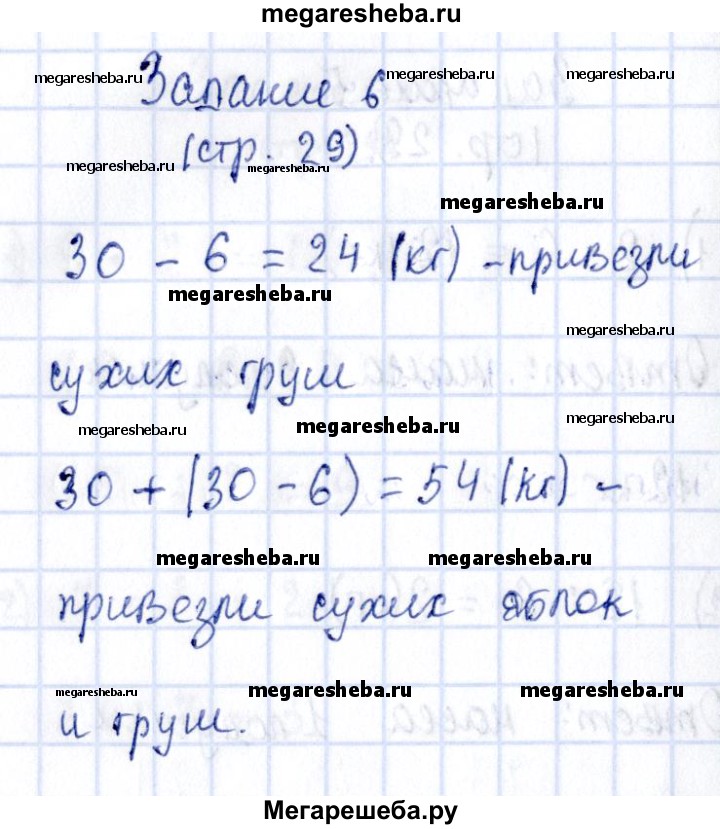 megaresheba.ru
megaresheba.ru Задание 6 megaresheba.ru megaresheba.ru
megaresheba.ru (стр. 29) megaresheba.ru
megaresheba.ru
30 - 6 = 24 (кг) - привезли
megaresheba.ru
megaresheba.ru
сухих груш
megaresheba.ru megaresheba.ru megaresheba.ru
30 + (30 - 6) = 54 (кг) -
megaresheba.ru megaresheba.ru
привезли сухих яблок
megaresheba.ru megaresheba.ru megaresheba.ru
и груш.
Мегарешеба.ру